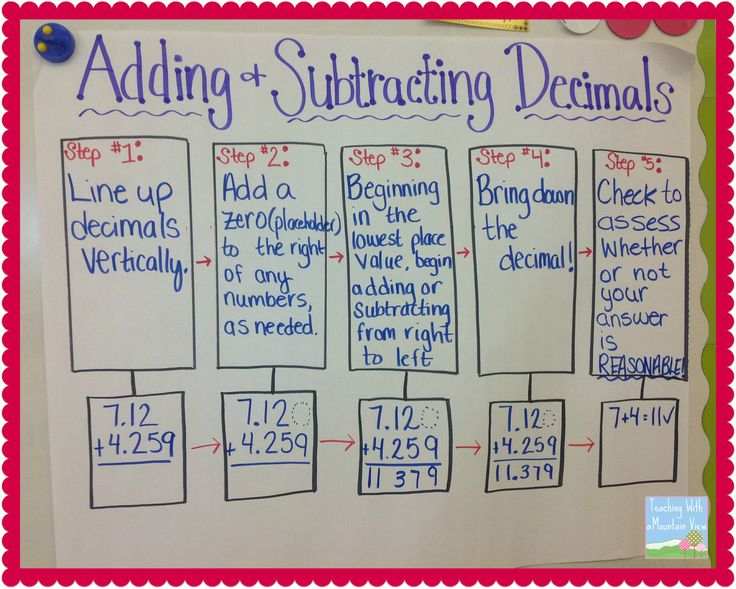 Adding + Subtracting Decimals
Step #1:
Line up
decimals
vertically.
Step #2:
Add a
zero (placeholder)
to the right
of any
numbers,
as needed.
Step #3:
Beginning
in the
lowest place
value, begin
adding or
subtracting
from right
to left
Step #4:
Bring down
the
decimal!
Step #5:
Check to
assess
whether
or not
your
answer
is
REASONABLE!
7.12
+4.259
7.120
+4.259
7.120
+4.259
11 379
7.120
+4.259
11.379
7+4=11✓
Teaching With
a Mountain View